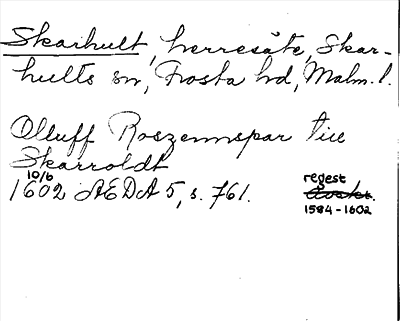 Skarhult, herresäte, Skar-
hults sn, Frosta hd, Malm. l.
Olluff Roszennspar till
Skarroldt
10/6
1602 AEDA 5, s. 761.
regest
1594-1602